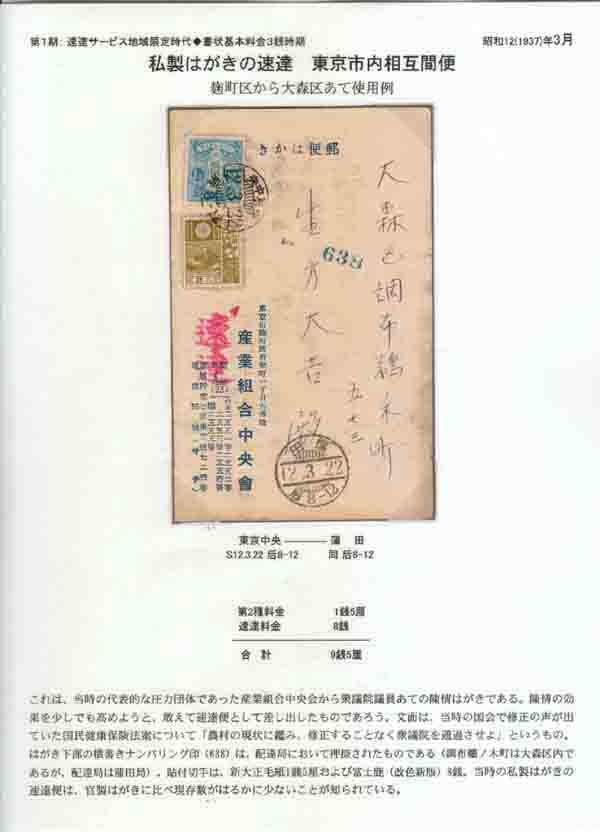 第1期：速達サービス地域限定時代◆書状基本料金3銭時期
昭和12(1937)年3月
私製はがきの速達　東京市内相互間便
麹町区から大森区あて使用例
きかは便郵
大森区調布鵜ノ木町
五七三
638
速達
産業組合中央會
蒲田
12.3.22
后8-12
東京中央────蒲　田
S12.3.22 后8-12　　同 后8-12
第2種料金　　1銭5厘
速達料金　　8銭
合　計　　9銭5厘
これは、当時の代表的な圧力団体であった産業組合中央会から衆議院議員あての陳情はがきである。陳情の効
果を少しでも高めようと、敢えて速達便として差し出したものであろう。文面は、当時の国会で修正の声が出
ていた国民健康保険法案について「農村の現状に鑑み、修正することなく衆議院を通過させよ」というもの。
はがき下部の横書きナンバリング印（638）は、配達局において押捺されたものである（調布鵜ノ木町は大森区内で
あるが、配達局は蒲田局）。貼付切手は、新大正毛紙1銭5厘および富士鹿（改色新版）8銭。当時の私製はがきの
速達便は、官製はがきに比べ現存数がはるかに少ないことが知られている。